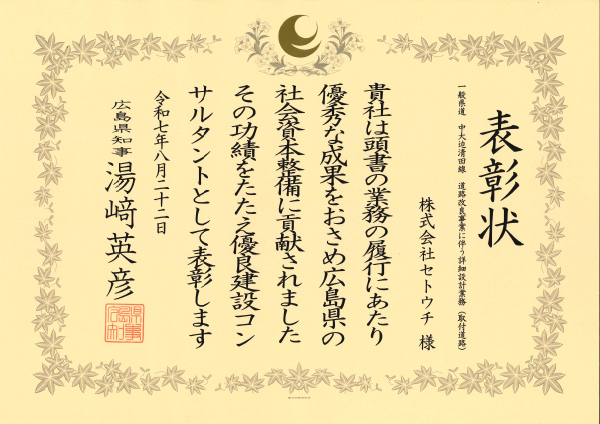 表彰状
一般県道　中大迫清田線　道路改良事業に伴う詳細設計業務（取付道路）
株式会社セトウチ　様
貴社は頭書の業務の履行にあたり
優秀な成果をおさめ広島県の
社会資本整備に貢献されました
その功績をたたえ優良建設コン
サルタントとして表彰します
令和七年八月二十二日
広島県知事　湯﨑英彦